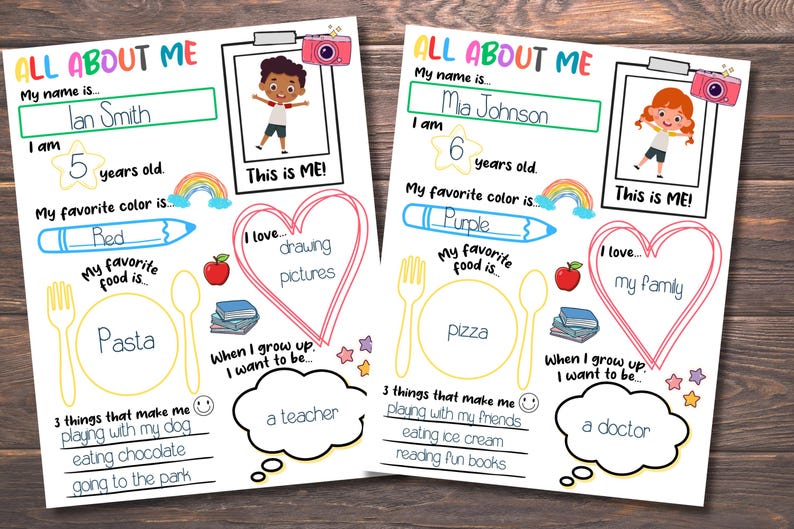 ALL ABOUT ME
My name is...
Ian Smith
I am
5
years old.
This is ME!
My favorite color is...
Red
My favorite
food is...
Pasta
I love...
drawing
pictures
When I grow up,
I want to be...
a teacher
3 things that make me
playing with my dog
eating chocolate
going to the park
ALL ABOUT ME
My name is...
Mia Johnson
I am
6
years old.
This is ME!
My favorite color is...
Purple
My favorite
food is...
pizza
I love...
my family
When I grow up,
I want to be...
a doctor
3 things that make me
playing with my friends
eating ice cream
reading fun books